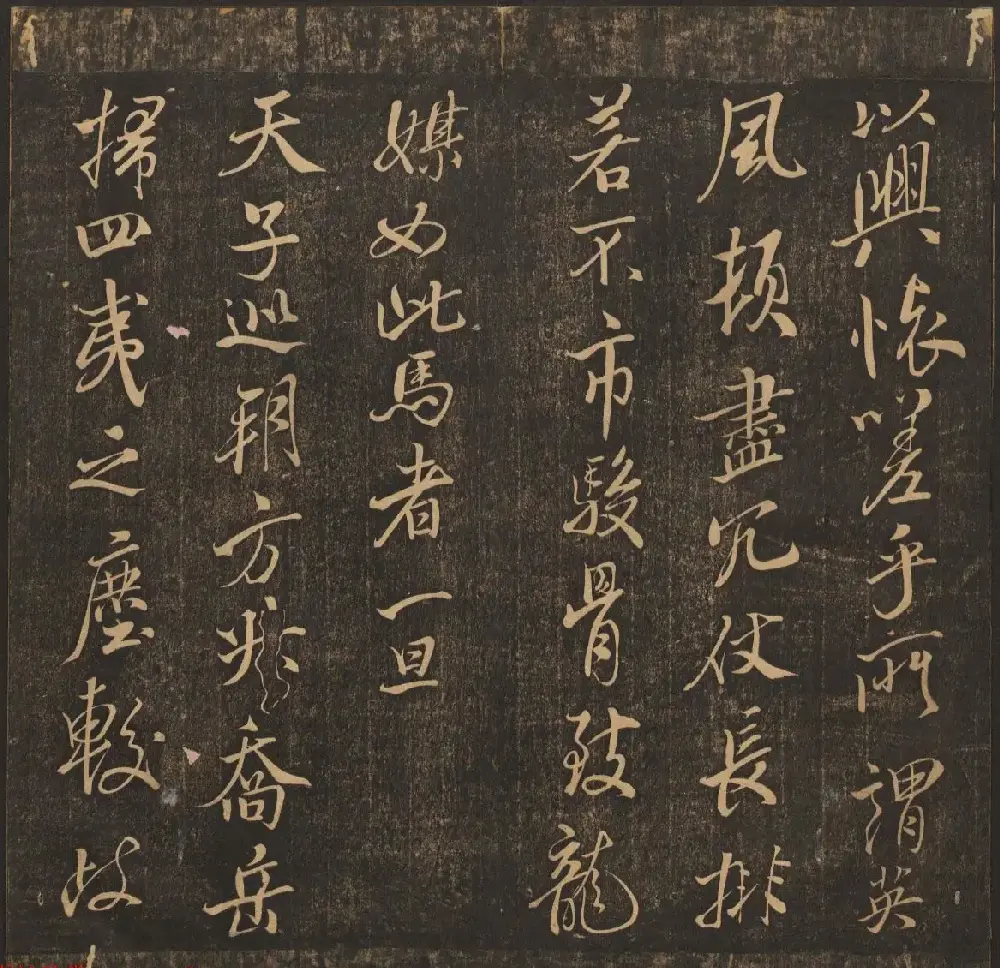 以興懷嗟乎所謂英
風頓盡冗仗長排
若不市駿骨致龍
媒如此馬者一旦
天子巡朔方喬岳
掃四夷之塵較歧